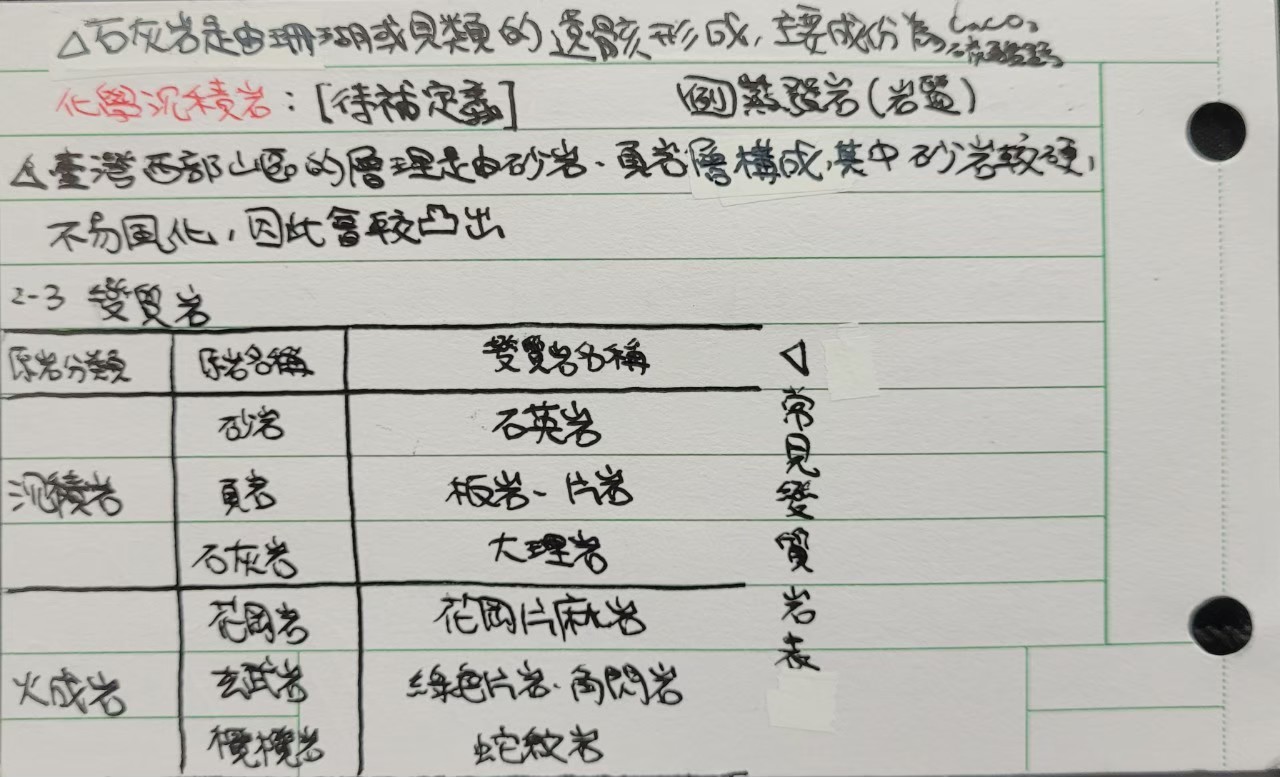 △石灰岩是由珊瑚或貝類的遺骸形成,主要成份為CaCO₃
碳酸鈣
化學沉積岩:[待補定義] 例 蒸發岩(岩鹽)
△臺灣西部山區的層理是由砂岩、頁岩層構成,其中砂岩較硬,
不易風化,因此會較凸出
2-3 變質岩
原岩分類 原岩名稱 變質岩名稱
砂岩 石英岩
沉積岩 頁岩 板岩、片岩
石灰岩 大理岩
花岡岩 花岡片麻岩
火成岩 玄武岩 綠色片岩、角閃岩
橄欖岩 蛇紋岩
◁常見變質岩表